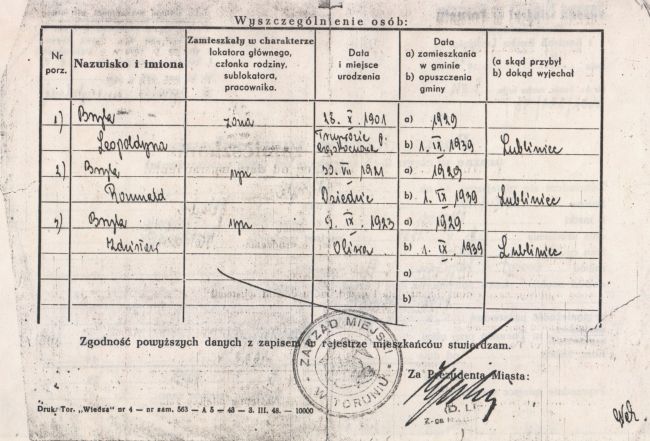 Wyszczególnienie osób:
Nr porz.
Nazwisko i imiona
Zamieszkały w charakterze
lokatora głównego,
członka rodziny,
sublokatora,
pracownika.
Data
i miejsce
urodzenia
Data
a) zamieszkania
w gminie
b) opuszczenia
gminy
(a skąd przybył
b) dokąd wyjechał
1) Bryła żona 28. X. 1901 a) 1929
Leopoldyna b) 1. IX. 1939 Lubliniec
2) Bryła syn 30. VII 1921 a) 1929
Romuald Dziedzic b) 1. IX 1939 Lubliniec
3) Bryła syn 9. IX. 1923 a) 1929
Zdzisław Oliwa b) 1. IX 1939 Lubliniec
a)
b)
Zgodność powyższych danych z zapisem w rejestrze mieszkańców stwierdzam.
ZARZĄD MIEJSKI
W TORUNIU
Za Prezydenta Miasta:
Druk. Tor. „Wiedza" nr 4 — nr zam. 563 — A 5 — 48 — 3. III. 48. — 10000
Z-ca